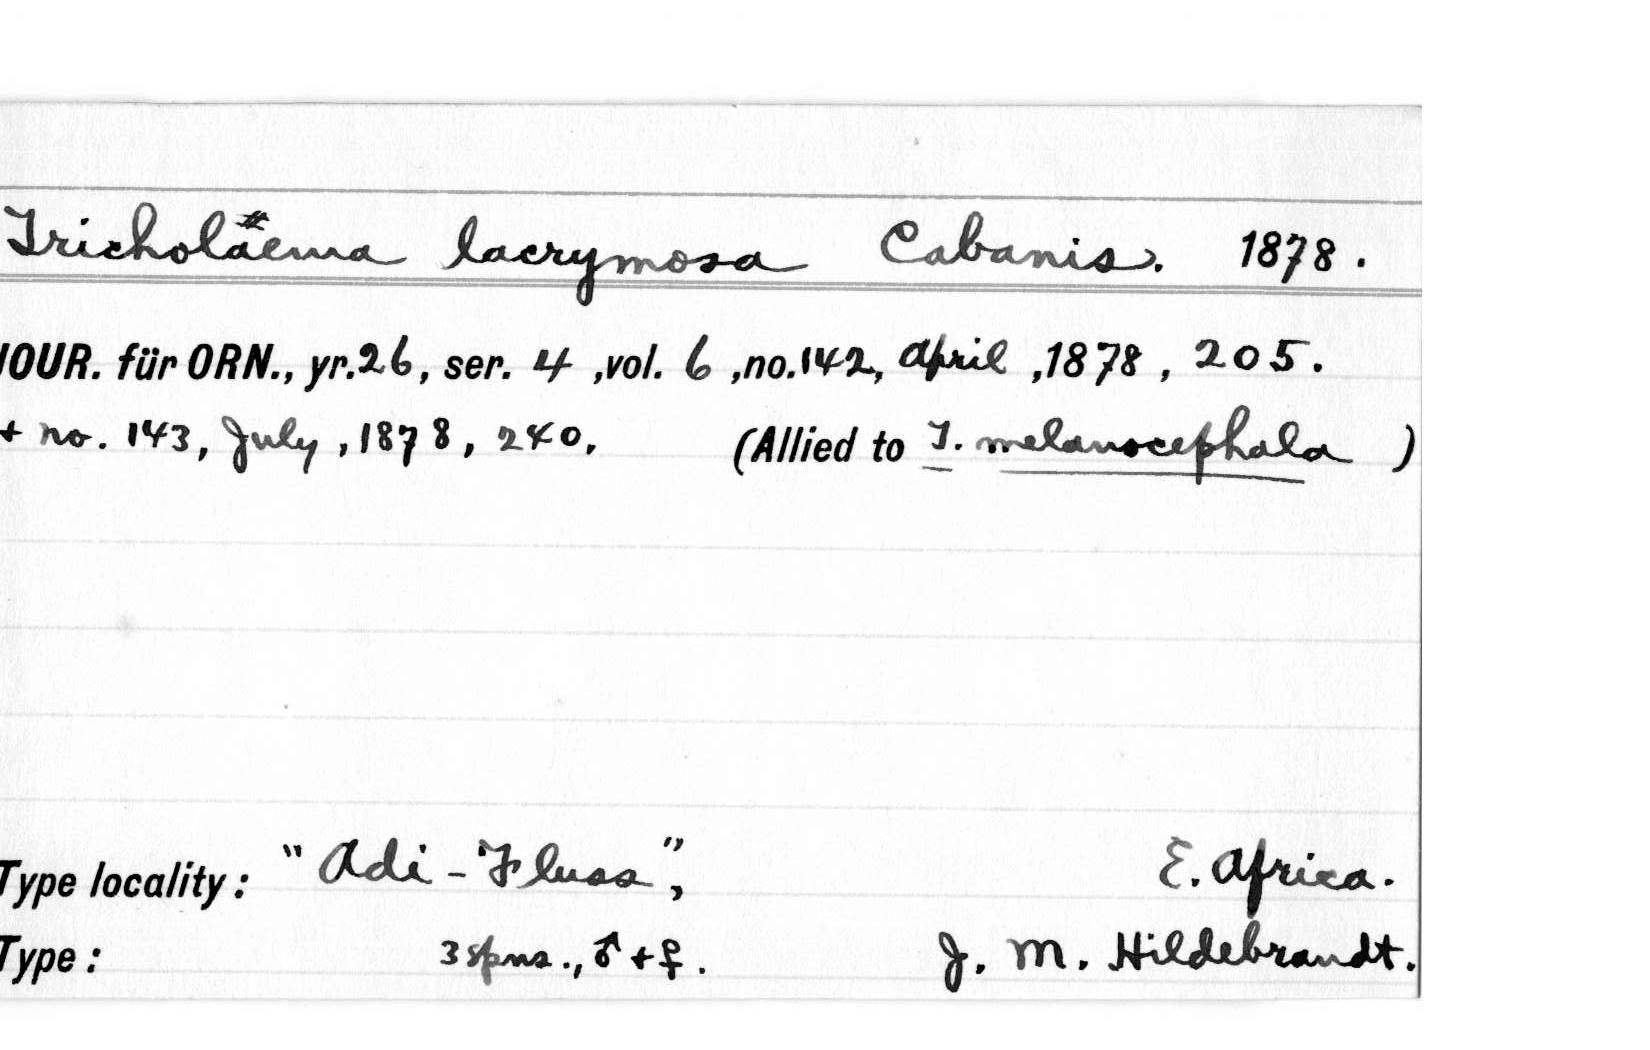 Tricholaema lacrymosa Cabanis. 1878.
JOUR. für ORN., yr. 26, ser. 4, vol. 6, no. 142, April, 1878, 205.
+ no. 143, July, 1878, 240. (Allied to T. melanocephala )
Type locality: "Adi-Fluss", E. Africa.
Type: 3 spns., ♂ + ♀. J. M. Hildebrandt.